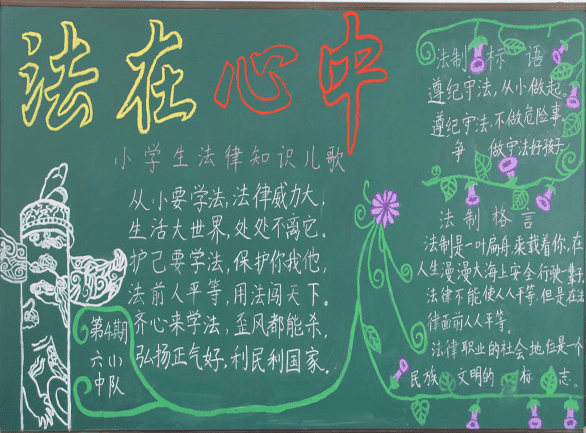 法在心中
小学生法律知识儿歌
从小要学法,法律威力大,
生活大世界,处处不离它。
护己要学法,保护你我他,
法前人平等,用法闯天下。
齐心来学法,歪风都能杀,
弘扬正气好,利民利国家。
第4期
六(1)
中队
法制标语
遵纪守法,从小做起。
遵纪守法,不做危险事,
争 做守法好孩子
法制格言
法制是一叶扁舟,乘载着你,在
人生漫漫大海上安全行驶一辈子
法律不能使人人平等,但是在法
律面前人人平等。
法律职业的社会地位是一个
民族 文明的 标 志.